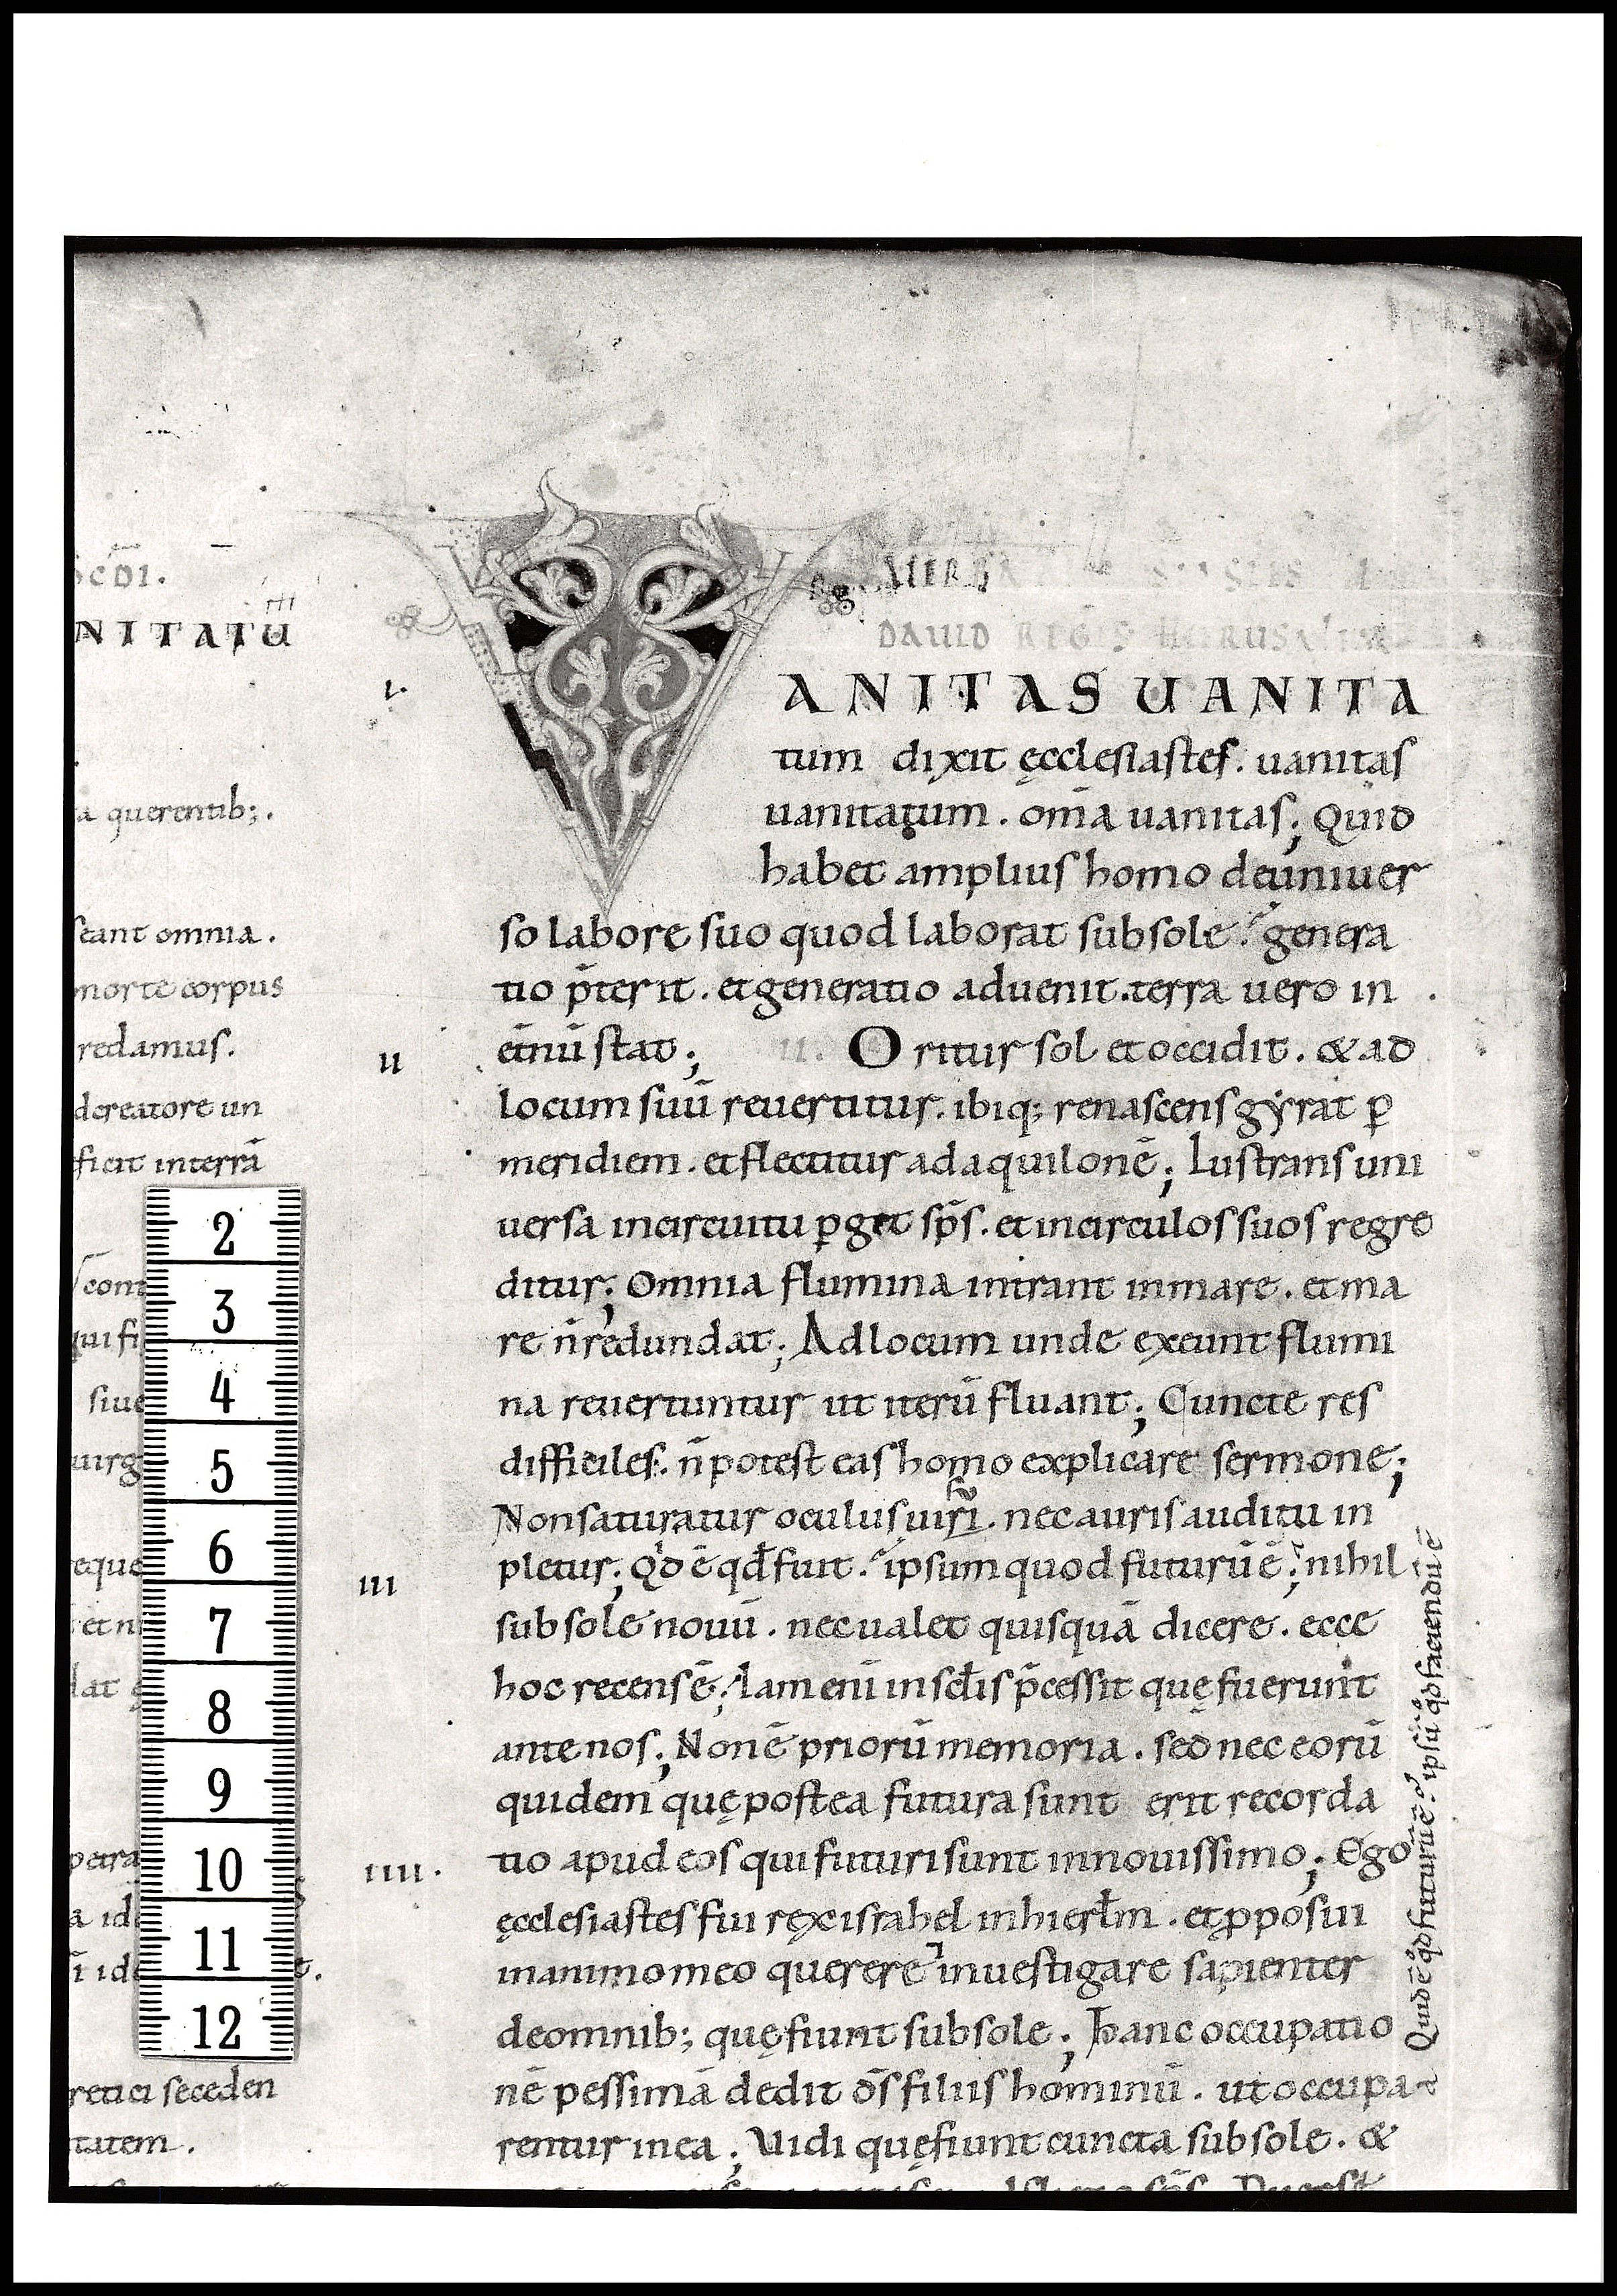 SCDI.
NITATŪ
a querentib;.
seant omnia.
morte corpus
redamus.
dereatore un
ficit interrā
cont
qui fi
siue
uirg
eque
et n
lat
petra
a ide
ī ide
retici seceden
tatem.
VERBA
DAUID REGIS HIERUSALEM
I.
VANITAS UANITA
tum dixit ęcclesiastes. uanitas
uanitatum. om̄a uanitas; Quid
habet amplius homo deuniuer
so labore suo quod laborat subsole? genera
tio p̄terit. et generatio aduenit. terra uero in
et̄nū stat; II. Oritur sol et occidit. & ad
II
locum suū reuertitur. ibiq; renascens gẏrat ꝑ
meridiem. et flectitur ad aquilonē; Lustrans uni
uersa incircuitu ꝑget sp̄s. et incirculos suos regre
ditur; Omnia flumina intrant inmare. et ma
re n̄ redundat; Adlocum unde exeunt flumi
na reuertuntur ut iterū fluant; Cuncte res
difficiles. n̄ potest eas homo explicare sermone;
Non saturatur oculus uiri. nec auris auditu in
III
pletur; Qd ē qd̄ fuit. ipsum quod futurū ē; nihil
subsole nouū. nec ualet quisquā dicere. ecce
hoc recens ē; Iam eni in scl̄is p̄cessit quę fuerunt
ante nos; Non ē priorū memoria. sed nec eorū
quidem quę postea futura sunt erit recorda
IIII.
tio apud eos qui futuri sunt innouissimo; Ego
ęcclesiastes fui rex israhel inhierl̄m. et ꝓposui
inanimo meo querere ⁊ inuestigare sapienter
deomnib; quę fiunt subsole; hanc occupatio
nē pessimā dedit d̄s filiis hominū. ut occupa
rentur inea; Uidi quę fiunt cuncta subsole. &
Quid ē qd̄ futurū ē? ipsū qd̄ faciendū ē
2
3
4
5
6
7
8
9
10
11
12